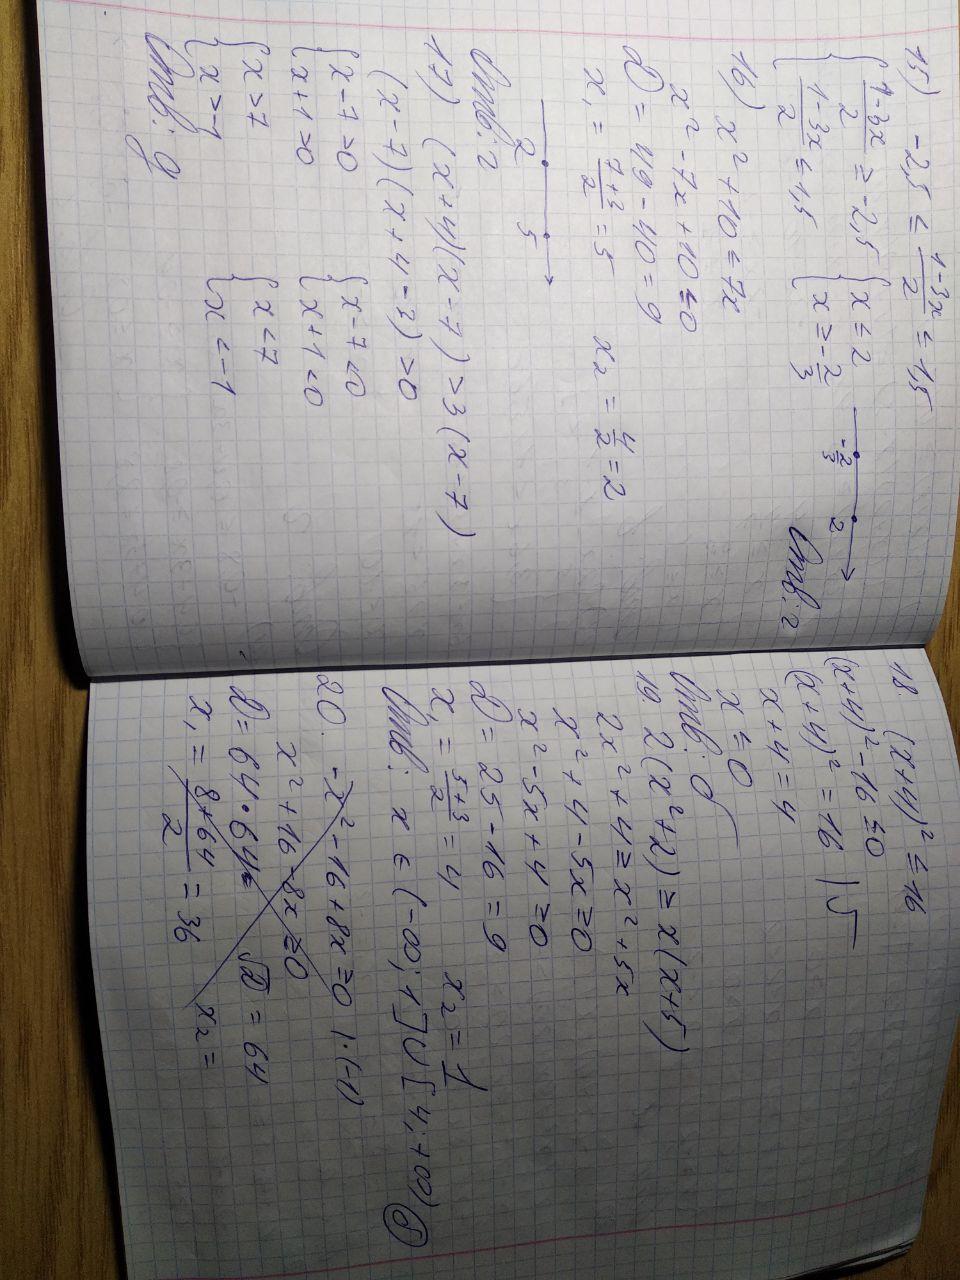 15) -2,5 ≤ (1-3x)/2 ≤ 1,5
{ (1-3x)/2 ≥ -2,5 { x ≤ 2
{ (1-3x)/2 ≤ 1,5 { x ≥ -2/3
-2/3 2
Отв: 2
16) x² + 10 ≤ 7x
x² - 7x + 10 ≤ 0
D = 49 - 40 = 9
x₁ = (7+3)/2 = 5 x₂ = 4/2 = 2
2 5
Отв: 2
17) (x+4)(x-7) > 3(x-7)
(x-7)(x+4-3) > 0
{ x-7>0 { x-7<0
{ x+1>0 { x+1<0
{ x>7 { x<7
{ x>-1 { x<-1
Отв: g
18. (x+4)² ≤ 16
(x+4)² - 16 ≤ 0
(x+4)² = 16 | √
x+4 = 4
x ≤ 0
Отв: б
19. 2(x²+2) ≥ x(x+5)
2x² + 4 ≥ x² + 5x
x² + 4 - 5x ≥ 0
x² - 5x + 4 ≥ 0
D = 25 - 16 = 9
x₁ = (5+3)/2 = 4 x₂ = 1
Отв: x ∈ (-∞; 1] ∪ [4; +∞) б
20. -x² - 16 + 8x ≥ 0 | ·(-1)
x² + 16 - 8x ≥ 0
D = 64 · 64 √D = 64
x₁ = (8+64)/2 = 36 x₂ =